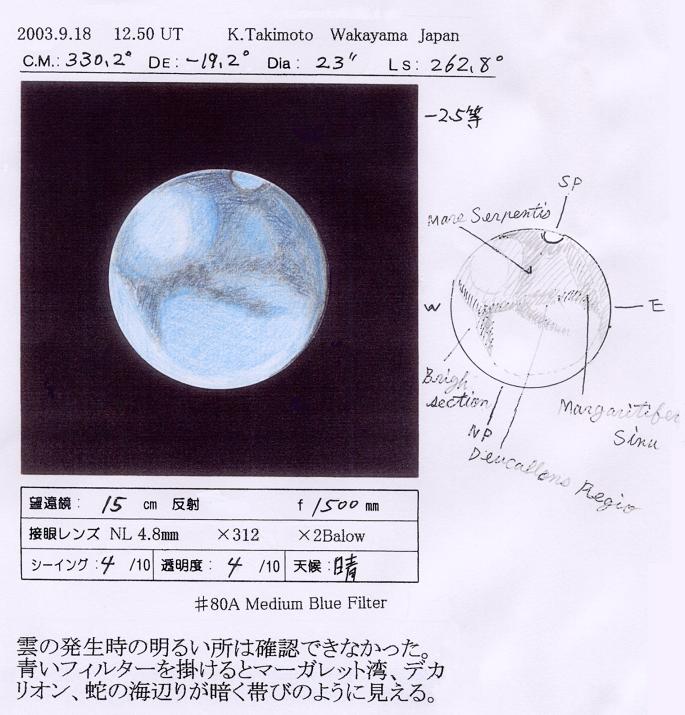 2003.9.18 12.50 UT K.Takimoto Wakayama Japan
C.M.: 330,2° DE: -19,2° Dia: 23" Ls: 262,8°
-2.5等
SP
Mare Serpentis
W
E
Brigh
section
NP
Margaritifer
Sinu
Deucallons Regio
望遠鏡: 15 cm 反射 f 1500 mm
接眼レンズ NL 4.8mm ×312 ×2Balow
シーイング: 4 /10 透明度: 4 /10 天候: 晴
#80A Medium Blue Filter
雲の発生時の明るい所は確認できなかった。
青いフィルターを掛けるとマーガレット湾、デカ
リオン、蛇の海辺りが暗く帯びのように見える。